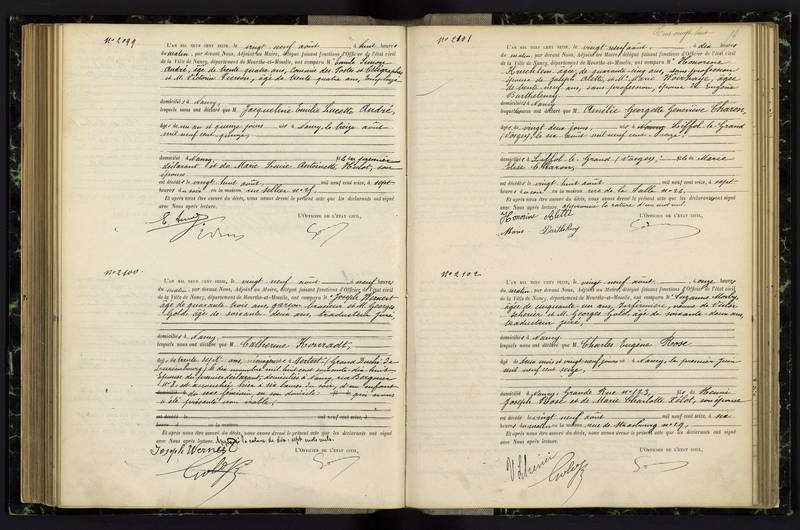 N° 2099
L'AN MIL NEUF CENT SEIZE, le vingt neuf août, à huit heures
du matin, par devant Nous, Adjoint au Maire, délégué faisant fonctions d'Officier de l'état civil
de la Ville de Nancy, département de Meurthe-et-Moselle, ont comparu M. Emile Simon
André, âgé de trente quatre ans, Commis des Postes et Télégraphes
et M. Victorin Pierson, âgé de trente quatre ans, employé
domiciliés à Nancy,
lesquels nous ont déclaré que M Jacqueline Emilie Lucette André,
âgée de un an et quinze jours née à Nancy, le treize août
mil neuf cent quinze,
domiciliée à Nancy, fille du premier
déclarant et de Marie Lucie Antoinette, son
épouse
est décédée le vingt huit août, mil neuf cent seize, à sept
heures du soir en la maison, rue Sellier n°
Et après nous être assuré du décès, nous avons dressé le présent acte que les déclarants ont signé
avec Nous après lecture.
L'OFFICIER DE L'ÉTAT CIVIL,
N° 2100
L'AN MIL NEUF CENT SEIZE, le vingt neuf août à neuf heures
du matin, par devant Nous, Adjoint au Maire, délégué faisant fonctions d'Officier de l'état civil
de la Ville de Nancy, département de Meurthe-et-Moselle, ont comparu M. Joseph Werner
âgé de quarante trois ans, garçon brasseur et M. Georges
Gold âgé de soixante deux ans, traducteur juré,
domiciliés à Nancy
lesquels nous ont déclaré que M Catherine Konradt,
âgée de trente sept ans, ménagère à Mertert, (Grand Duché de
Luxembourg) le dix mil huit cent soixante dix huit
épouse du premier déclarant; domiciliée à Nancy rue
n° 8, est accouchée hier à six heures du soir, d'un enfant
de sexe féminin en son domicile qui nous
a été présenté non viable;
est décédé le mil neuf cent seize, à
heures d en la maison
Et après nous être assuré du décès, nous avons dressé le présent acte que les déclarants ont signé
avec Nous après lecture. la rature de dix-sept mots nuls.
L'OFFICIER DE L'ÉTAT CIVIL,
Joseph Werner
N° 2101
L'AN MIL NEUF CENT SEIZE, le vingt neuf août, à dix heures
du matin, par devant Nous, Adjoint au Maire, délégué faisant fonctions d'Officier de l'état civil
de la Ville de Nancy, département de Meurthe-et-Moselle, ont comparu M Honorine
âgée de quarante cinq ans, sans profession
épouse de Joseph Aletti et M Marie âgée
de trente neuf ans, sans profession, épouse de Eugène
Barthélemy
domiciliés à Nancy
lesquels nous ont déclaré que M Amélie Georgette Geneviève Charon,
âgée de vingt deux jours, née à Liffol-le-Grand
(Vosges), le six août mil neuf cent seize;
domiciliée à Liffol-le-Grand (Vosges); fille de Marie
Elise Charon,
est décédée le vingt huit août mil neuf cent seize, à sept
heures du soir en la maison rue de la Salle n° 26,
Et après nous être assuré du décès, nous avons dressé le présent acte que les déclarants ont signé
avec Nous après lecture, approuvé la rature d'un mot nul.
L'OFFICIER DE L'ÉTAT CIVIL,
Honorine Aletti
Marie Barthélemy
N° 2102
L'AN MIL NEUF CENT SEIZE, le vingt neuf août, à onze heures
du matin, par devant Nous, Adjoint au Maire, délégué faisant fonctions d'Officier de l'état civil
de la Ville de Nancy, département de Meurthe-et-Moselle, ont comparu M Suzanne
âgée de cinquante un ans, infirmière, veuve de Victor
et M. Georges Gold âgé de soixante deux ans,
traducteur juré,
domiciliés à Nancy
lesquels nous ont déclaré que M Charles Eugène Rose
âgé de deux mois et vingt neuf jours né à Nancy, le premier juin
mil neuf cent seize,
domicilié à Nancy, Grande Rue n° 123, fils de Henri
Joseph Rose et de Marie Charlotte, son épouse
est décédé le vingt neuf août mil neuf cent seize, à six
heures du matin en la maison, rue de Strasbourg n° 29,
Et après nous être assuré du décès, nous avons dressé le présent acte que les déclarants ont signé
avec Nous après lecture.
L'OFFICIER DE L'ÉTAT CIVIL,